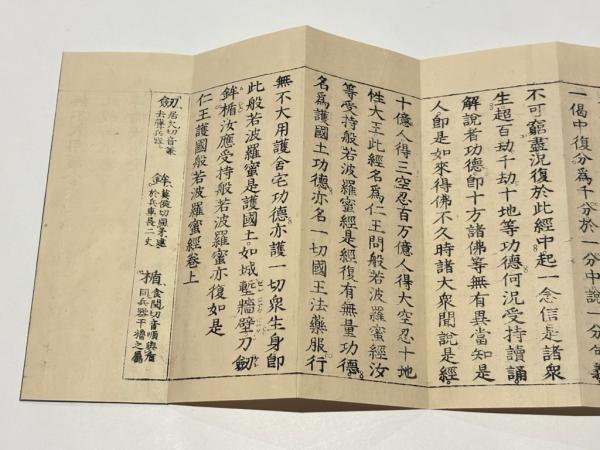 一偈中復分為千分於一分中說一分句義
不可窮盡況復於此經中起一念信是諸眾
生超百劫千劫十地等功德何況受持讀誦
解說者功德即十方諸佛等無有異當知是
人即是如來得佛不久時諸大眾聞說是經
十億人得三空忍百万億人得大空忍十地
性大王此經名為仁王問般若波羅蜜經汝
等受持般若波羅蜜經是經復有無量功德
名為護國土功德亦名一切國王法藥服行
無不大用護舍宅功德亦護一切眾生身即
此般若波羅蜜是護國土如城塹牆壁刀劔
鉾楯汝應受持般若波羅蜜亦復如是
仁王護國般若波羅蜜經卷上
劔 居欠切音兼
去聲兵器
鉾
於兵車長二丈
楯 食閏切音順與盾
同兵器干櫓之屬